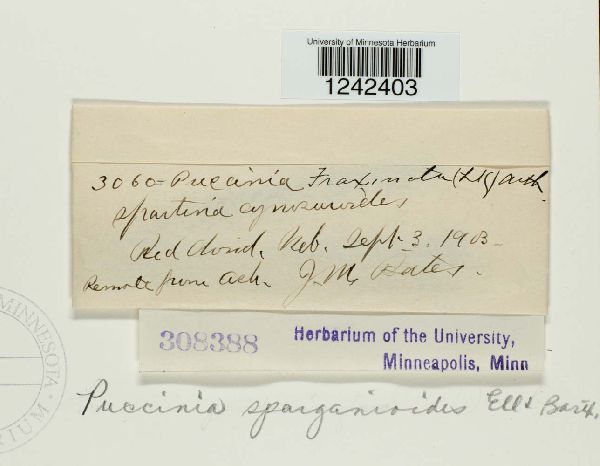 University of Minnesota Herbarium
1242403
3060- Puccinia Fraxinata (Lk) Arth.
Spartina cynosuroides
Red Cloud, Neb. Sept. 3. 1903-
Remote from Ash. J. M. Bates.
308388
Herbarium of the University,
Minneapolis, Minn
MINNESOTA
Puccinia sparganioides Ell & Barth.